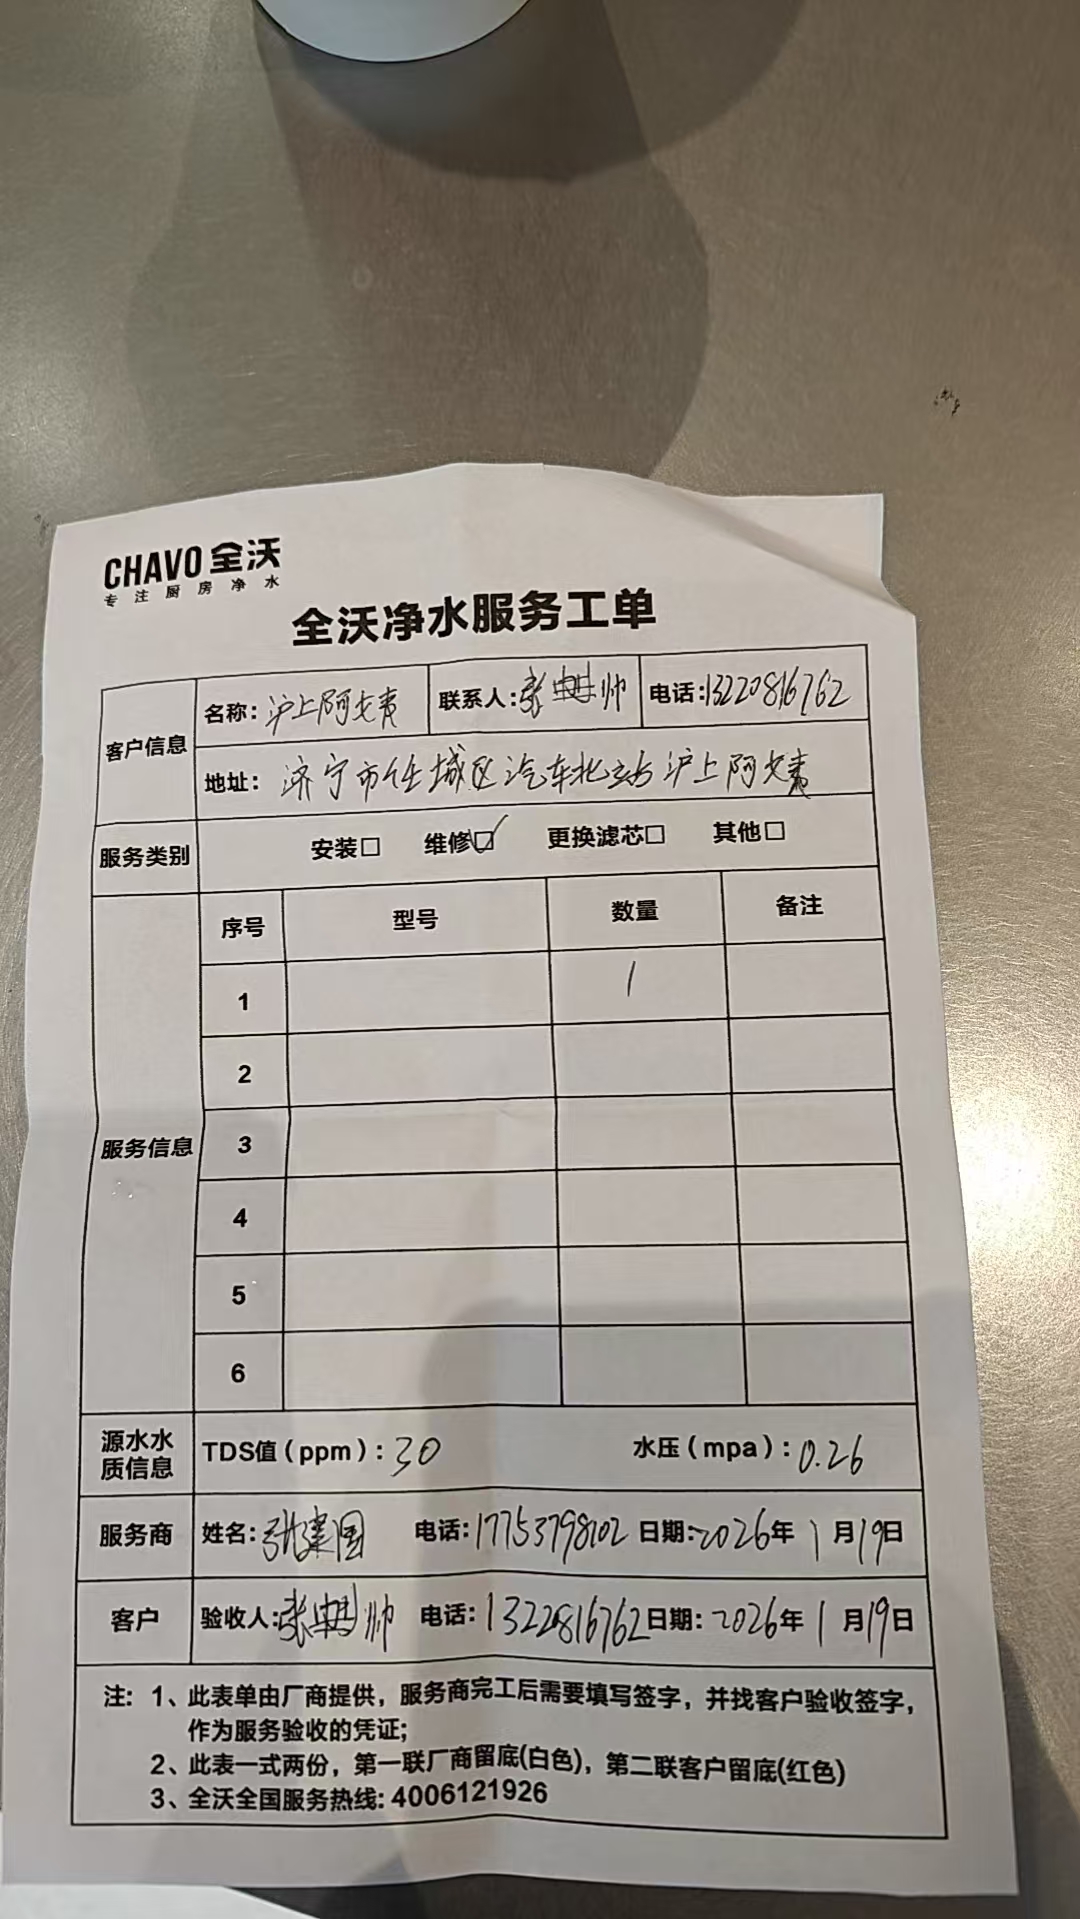 CHAVO 全沃
专注厨房净水
全沃净水服务工单
客户信息
名称：沪上阿姨 联系人：张帅 电话：13220816762
地址：济宁市任城区汽车北站沪上阿姨
服务类别 安装□ 维修☑ 更换滤芯□ 其他□
服务信息
序号 型号 数量 备注
1 1
2
3
4
5
6
源水水质信息 TDS值（ppm）：30 水压（mpa）：0.26
服务商 姓名：张建国 电话：17753798102 日期：2026年1月19日
客户 验收人：张帅 电话：13220816762 日期：2026年1月19日
注：1、此表单由厂商提供，服务商完工后需要填写签字，并找客户验收签字，
作为服务验收的凭证;
2、此表一式两份，第一联厂商留底(白色)，第二联客户留底(红色)
3、全沃全国服务热线: 4006121926